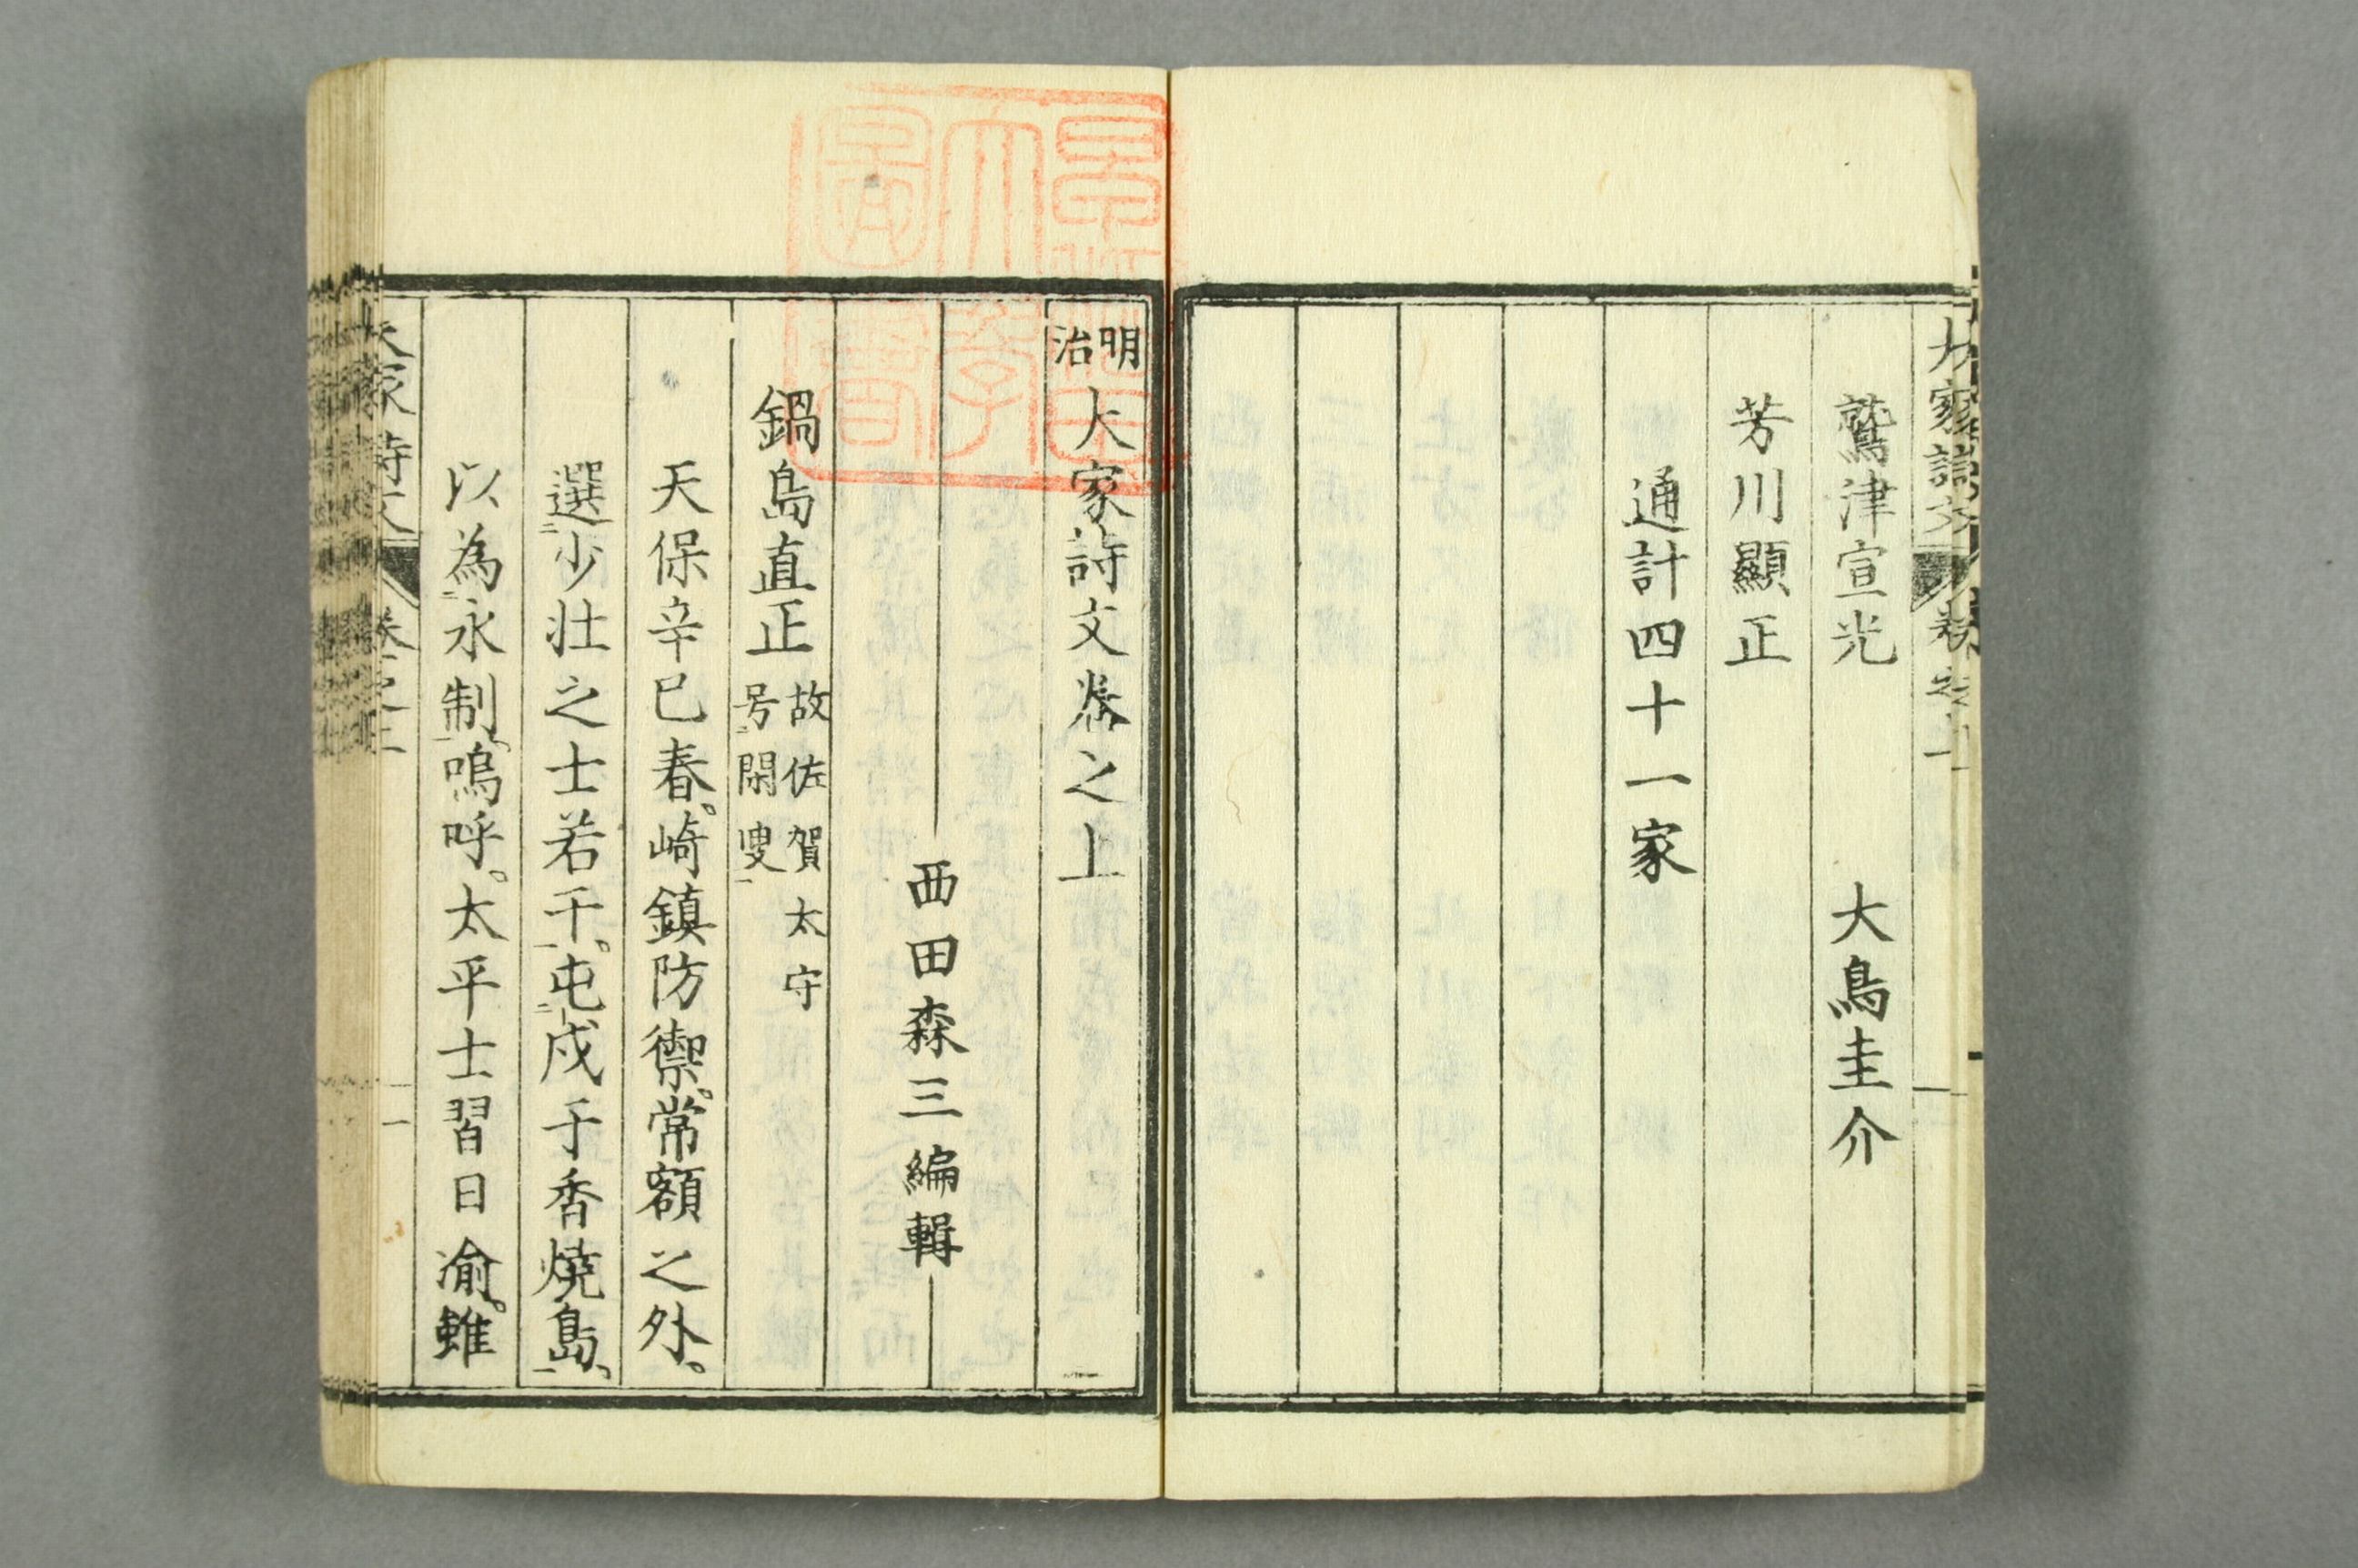 大家詩文 卷之上
鷲津宣光 大鳥圭介
芳川顯正
通計四十一家
明治大家詩文卷之上
西田森三編輯
鍋島直正 故佐賀太守号閑叟
天保辛巳春。崎鎮防禦。常額之外。
選少壯之士若干。屯戍于香燒島、
以為永制。嗚呼。太平士習日渝。雖
大家詩文 卷之上 一